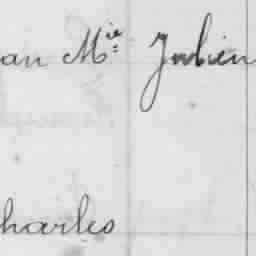 an Mie Julien
harles